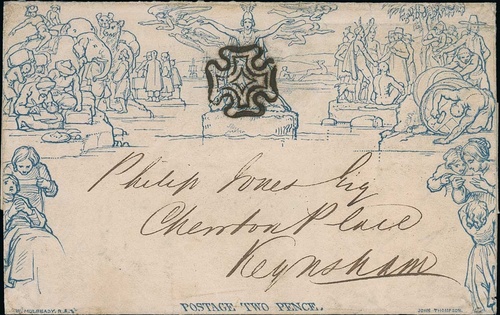 Philip Jones Esq
Chewton Place
Keynsham
POSTAGE TWO PENCE.
W. MULREADY. R.A.
JOHN THOMPSON.